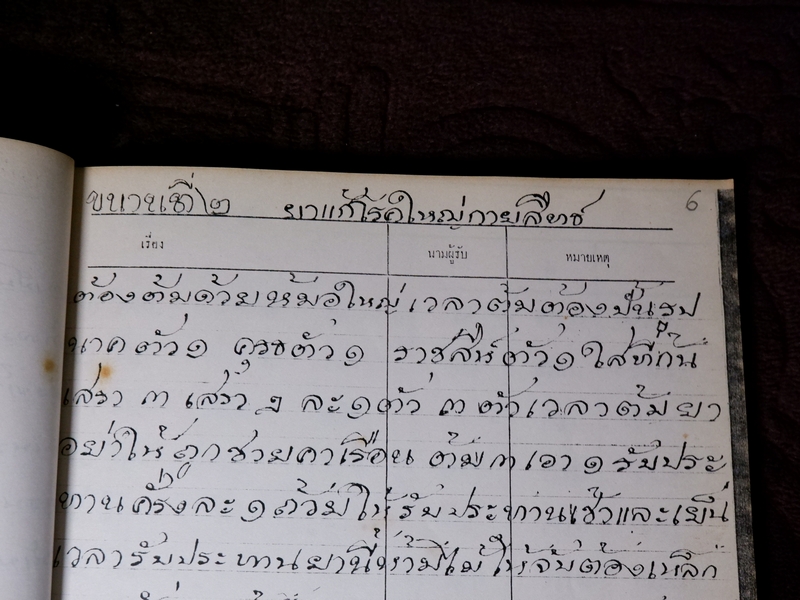 ขนานที่ ๒ ยาแก้โรคใหญ่กายสิทธิ์ 6
เรื่อง นามผู้รับ หมายเหตุ
ต้องต้มด้วยหม้อใหญ่ เวลาต้มต้องปั้นรูป
นาคตัว ๑ ครุธตัว ๑ ราชสีห์ตัว ๑ ใส่ที่ก้น
เส้า ๓ เส้า ๆ ละ ๑ ตัว ๓ ตัว เวลาต้มยา
อย่าให้ถูกชายคาเรือน ต้ม ๓ เอา ๑ รับประ
ทานครั้งละ ๑ ถ้วย ให้รับประทานเช้าและเย็น
เวลารับประทานยานี้ห้ามไม่ให้จับต้องเหล็ก